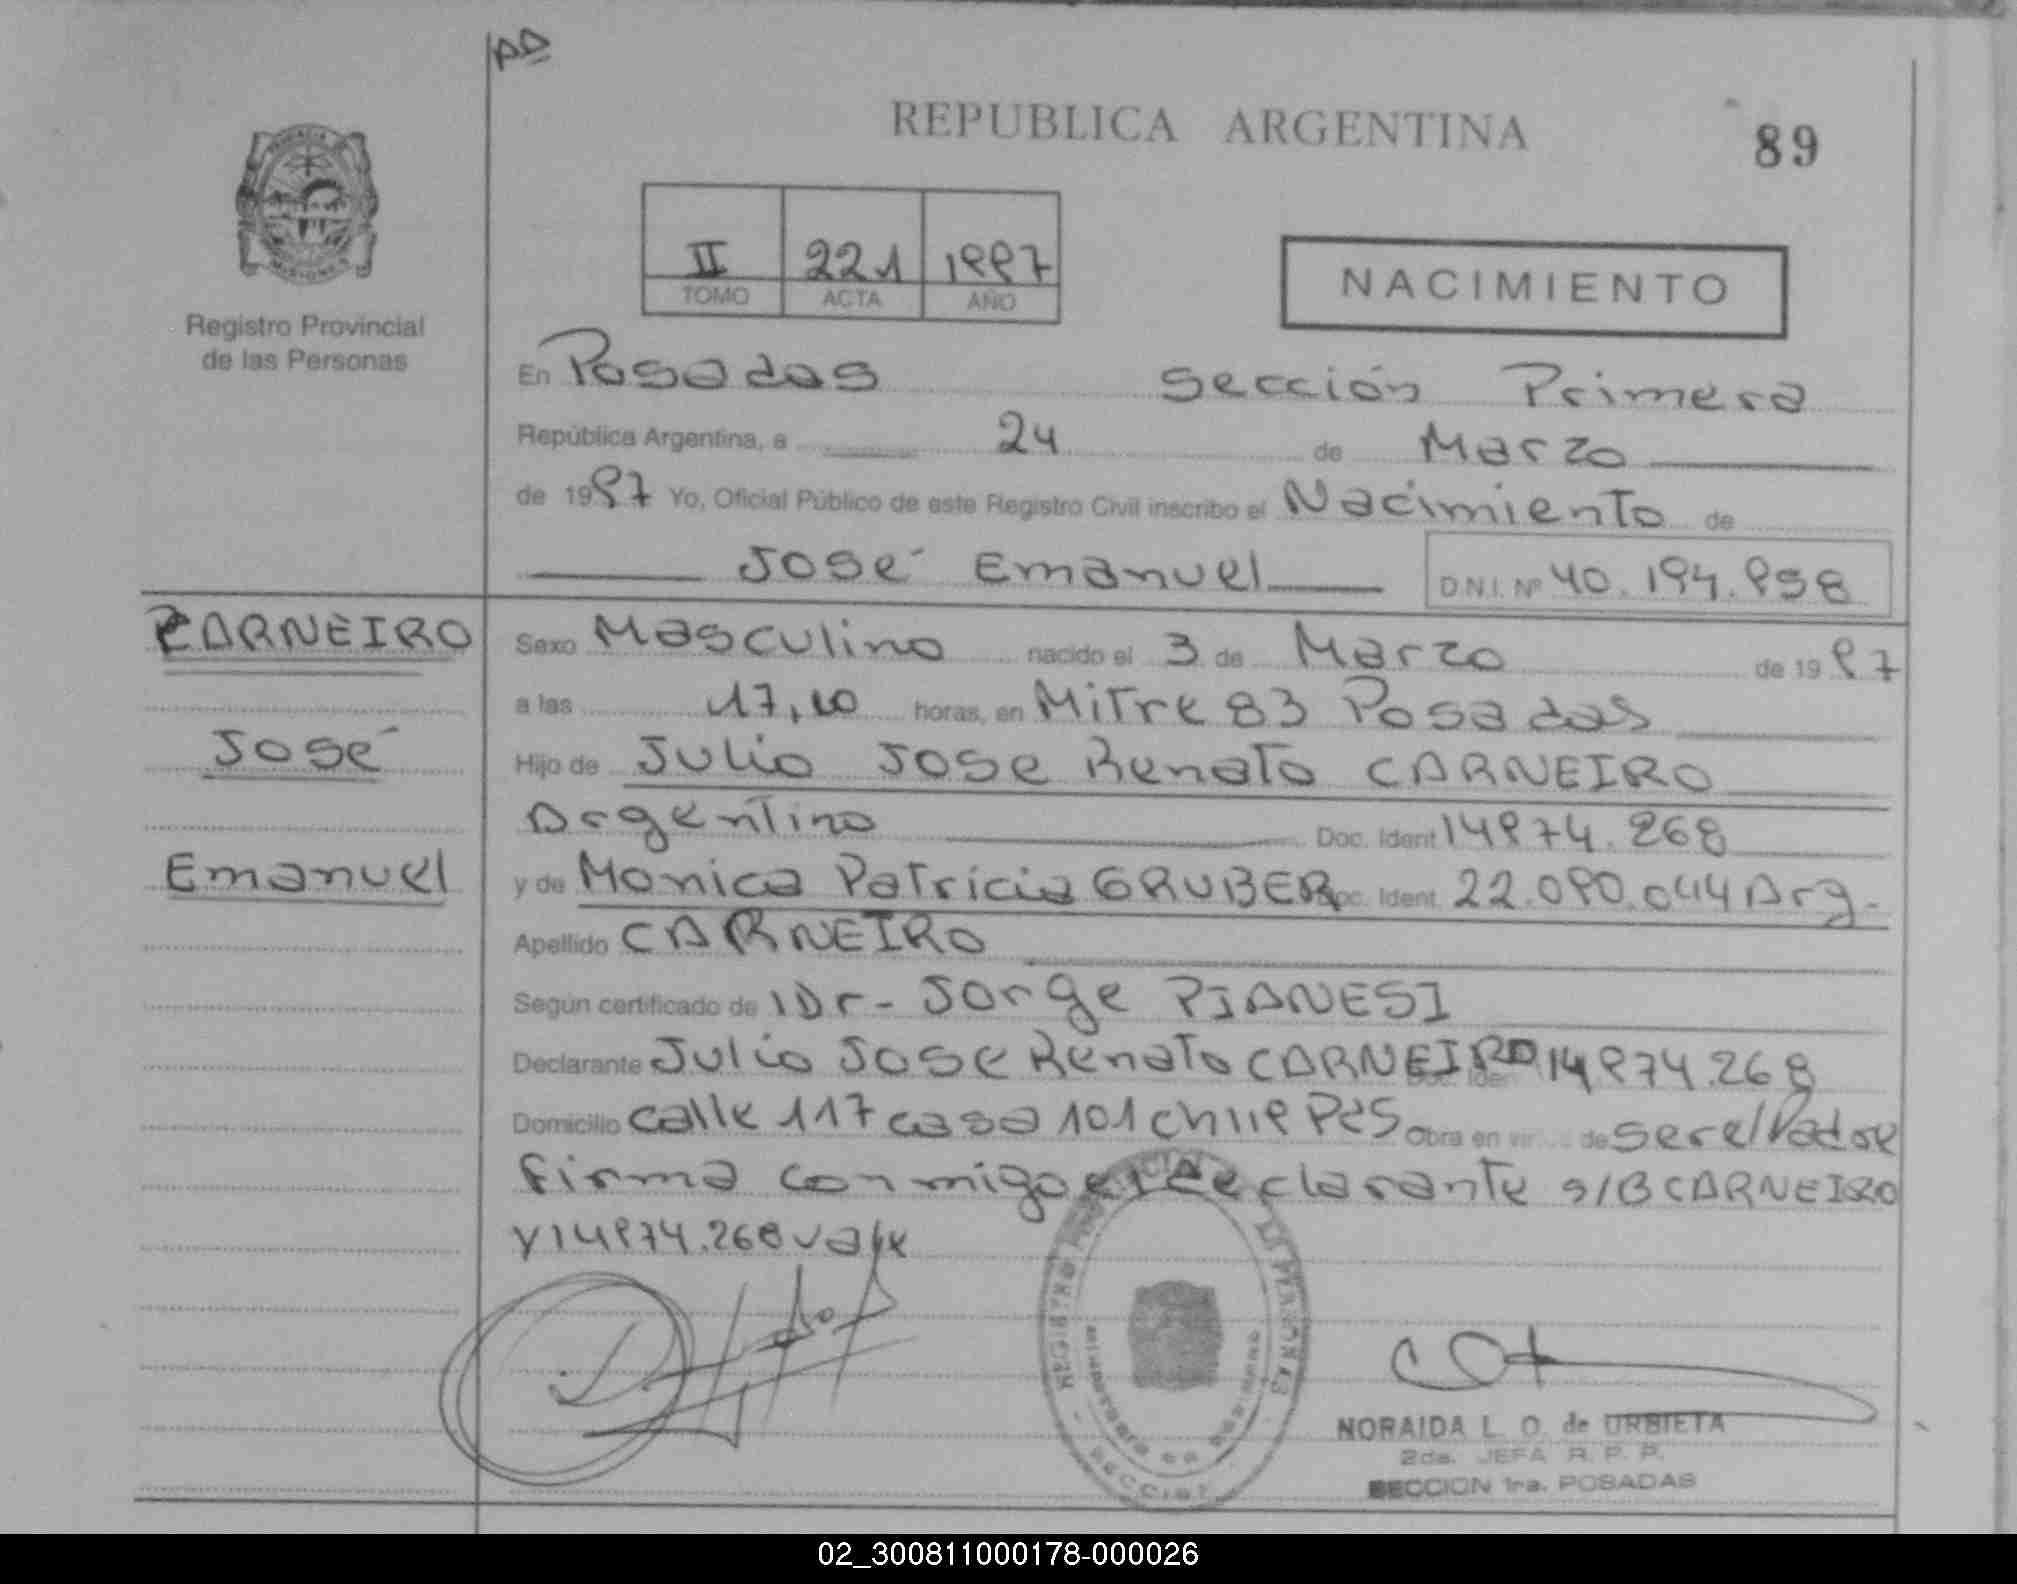 AD
REPUBLICA ARGENTINA
89
II 221 1997
TOMO ACTA AÑO
NACIMIENTO
MISIONES
Registro Provincial
de las Personas
En Posadas Sección Primera
República Argentina, a 24 de Marzo
de 1997 Yo, Oficial Público de este Registro Civil inscribo el Nacimiento de
José Emanuel D.N.I. Nº 40.194.958
CARNEIRO
José
Emanuel
Sexo Masculino nacido el 3 de Marzo de 1997
a las 17,10 horas, en Mitre 83 Posadas
Hijo de Julio Jose Renato CARNEIRO
Argentino Doc. Ident 14974.268
y de Monica Patricia GRUBER Doc. Ident. 22.090.044 Arg.
Apellido CARNEIRO
Según certificado de Dr- Jorge PIANESI
Declarante Julio Jose Renato CARNEIRO Doc. Iden 14974.268
Domicilio calle 117 casa 101 Pds Obra en de ser el Padre
firma conmigo el declarante s/B CARNEIRO
y 14974.268 vale
NORAIDA L. O. de URBIETA
2da. JEFA R. P. P.
SECCION 1ra. POSADAS
02_300811000178-000026